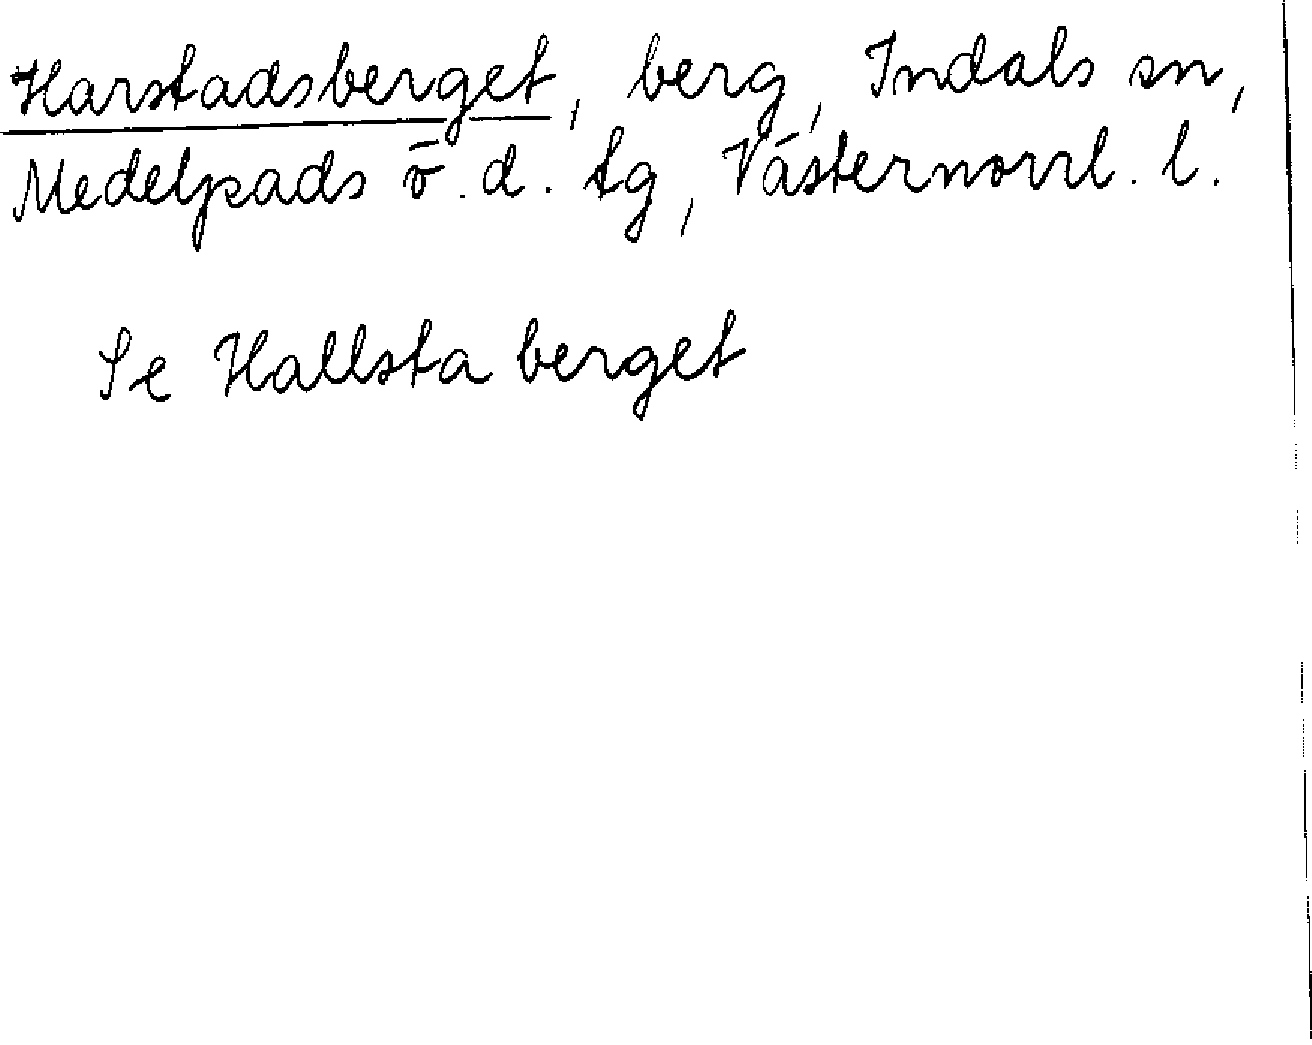 Harstadsberget, berg, Indals sn,
Medelpads ö. d. tg, Västernorrl. l.
Se Hallstaberget